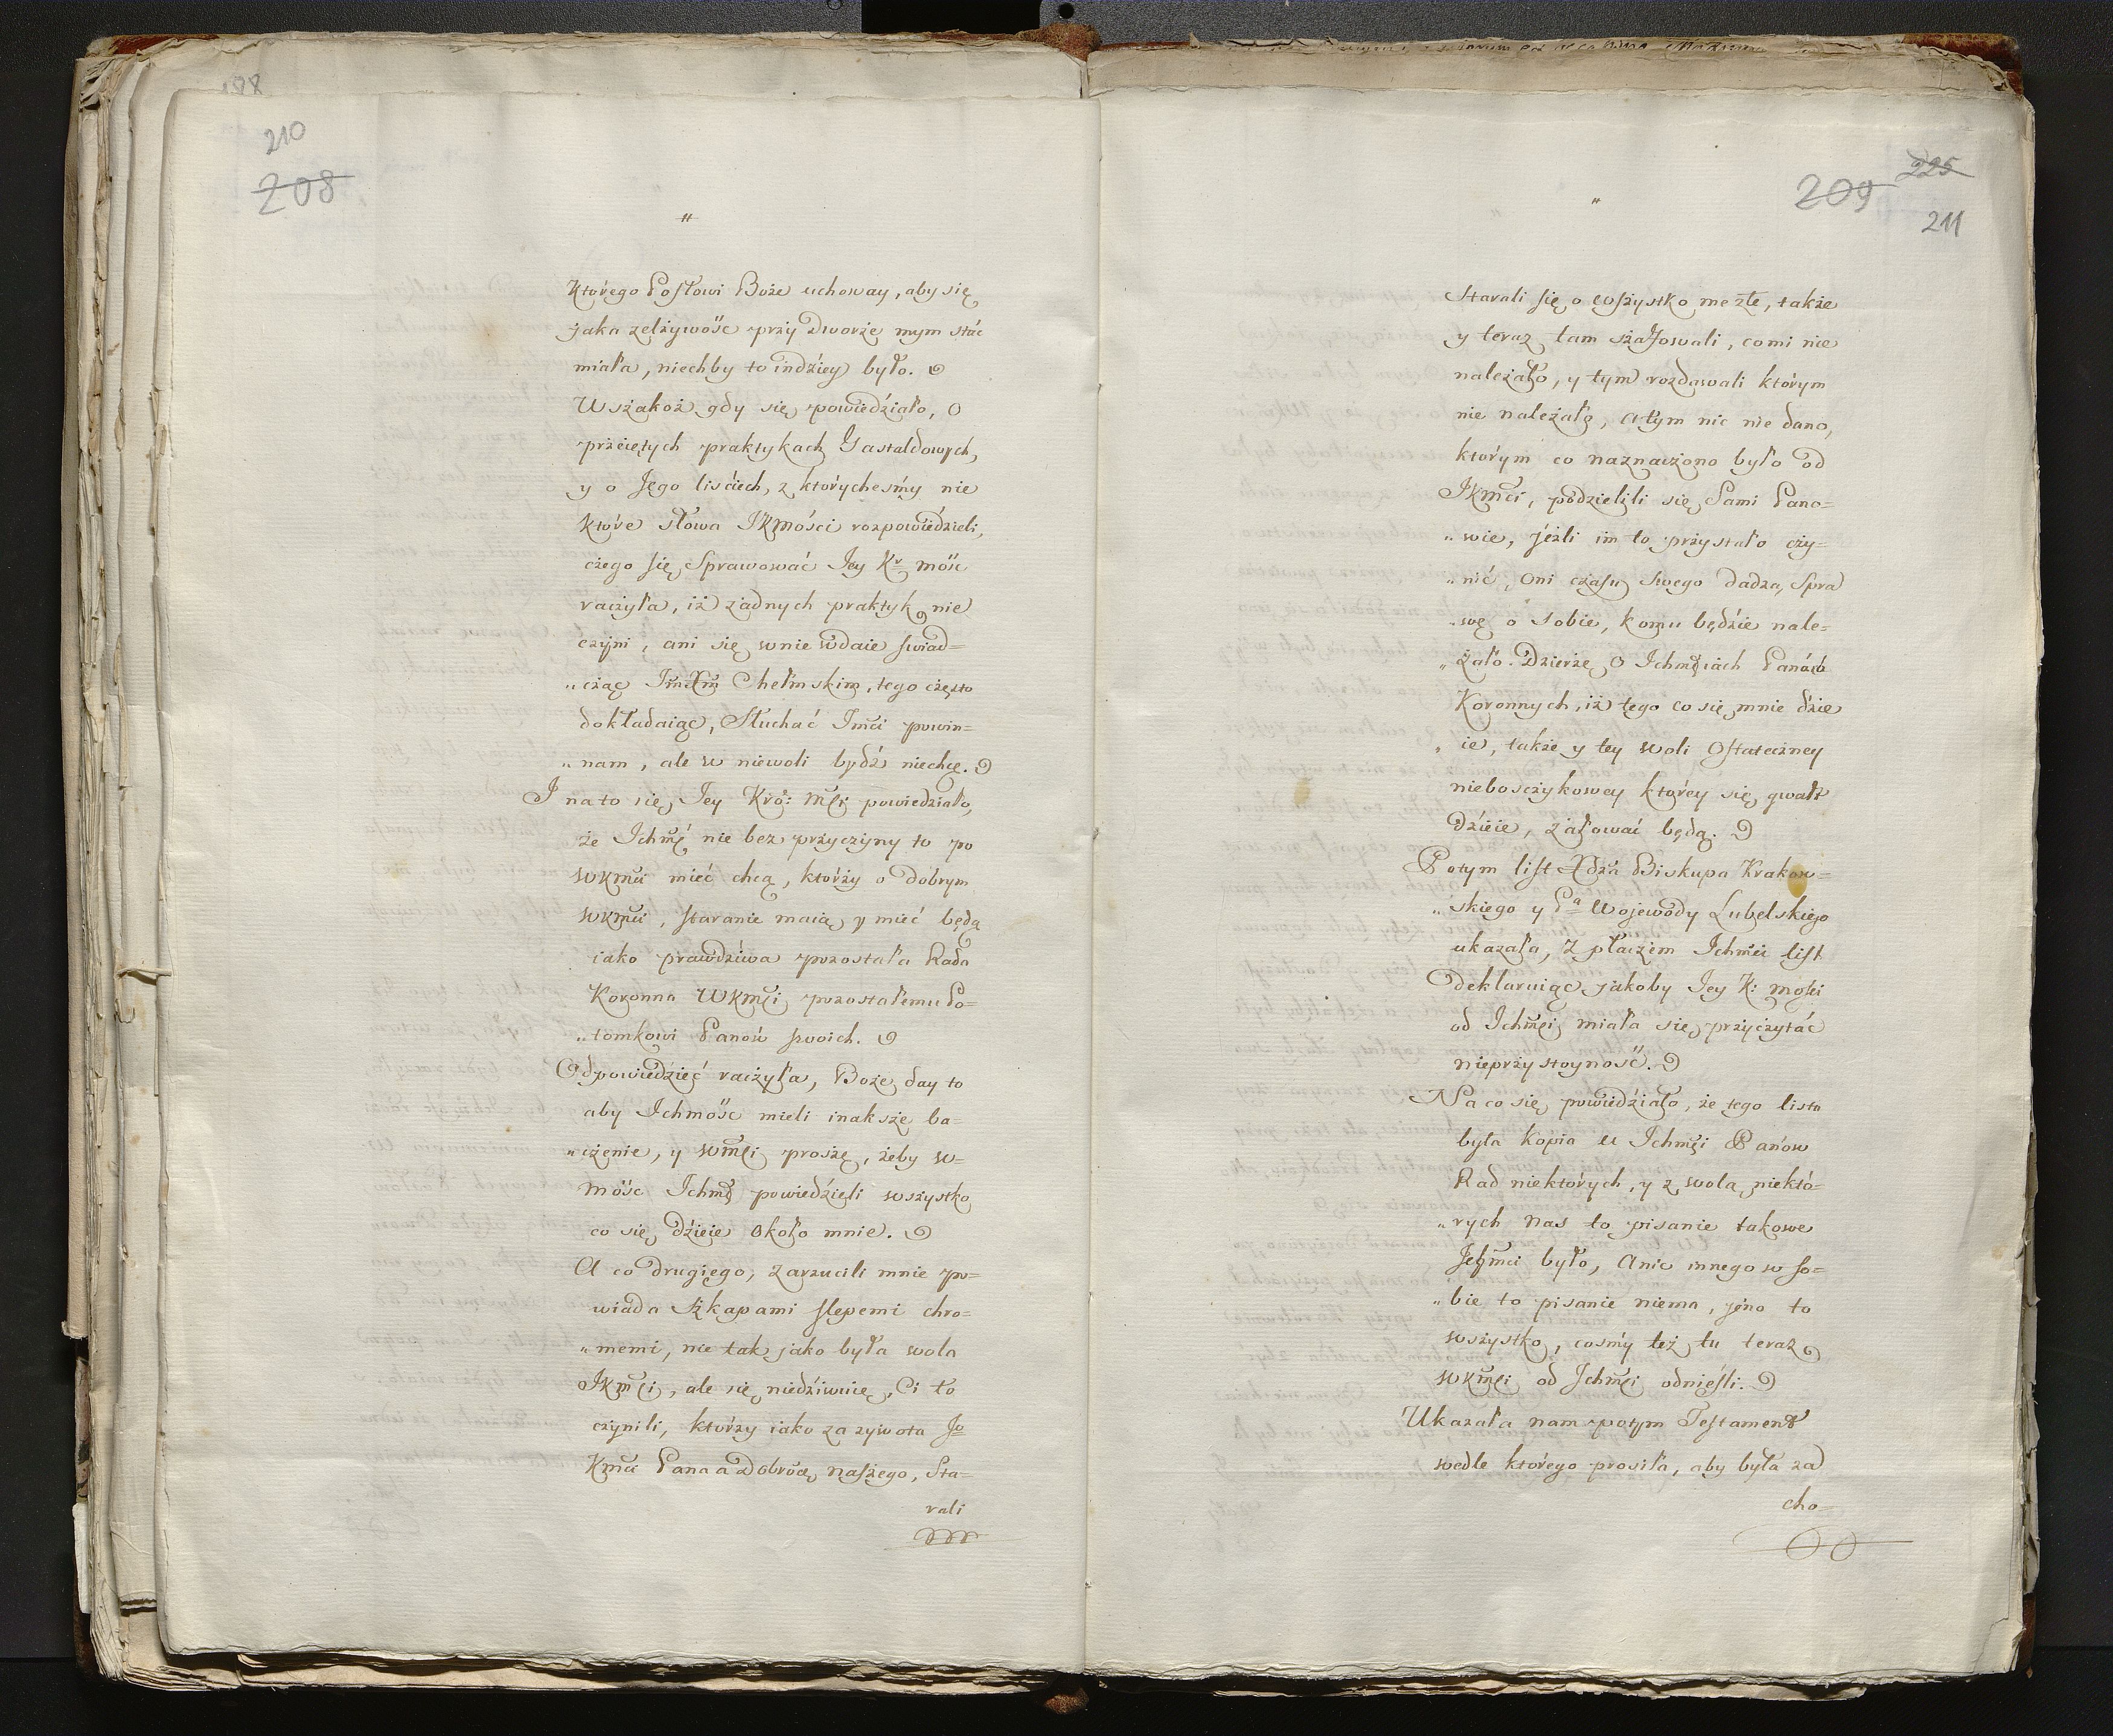 188
210
208
"
Którego Posłowi Boże uchoway, aby się
jaka zelżywość przy Dworze mym stać
miała, niechby to indźiey było.
Wszakoż gdy się powiedźiało, o
przeciętych praktykach Gastaldowych,
y o Jego liściech, z którychesmy nie
które słowa JKMości rozpowiedzieli,
czego się Sprawować Jey Kr mość
raczyła, iż żadnych praktyk nie
czyni, ani się wnie wdaie swiad=
„cząc Chełmskim, tego często
dokładaiąc, Słuchać Jmci powin=
„nam, ale w niewoli bydź niechcę.
I nato się Jey Kró: Mci powiedziało,
że Ichmć nie bez przyczyny to po
WKmci mieć chcą, którzy o dobrym
WKmci, staranie maią y mieć będą
iako prawdziwa pozostała Rada
Koronna WKmci pozostałemu Po=
„tomkowi Panów swoich.
Odpowiedzieć raczyła, Boże day to
aby Ichmość mieli inaksze ba=
„czenie, y Wmci proszę, żeby W=
mość Ichmć powiedźieli wszystko
co się dźieie około mnie.
A co drugiego, zarzucili mnie po=
wiada Szkapami slepemi chro=
„memi, nie tak jako była wola
JKmci, ale się niedźiwuię, Ci to
czynili, którzy iako za zywota Jo
Kmci Pana a Dobrod naszego, Sta=
rali
225
209
211
"
Starali się o wszystko me złe, także
y teraz tam szafowali, co mi nie
należało, y tym rozdawali którym
nie należało, a tym nic nie dano,
którym co naznaczono było od
JKmci, podzielili się Sami Pano=
„wie, jeżli im to przystało czy=
„nić, oni czasu swego dadzą Spra
„wę o sobie, komu będźie nale=
„żało. Dzierżę o Ichmściach Panów
Koronnych, iż tego co się mnie dźie
„ie, także y tey woli Ostateczney
nieboszczykowey którey się gwałt
dźieie, załować będą.
Potym list Xdza Biskupa Krakow=
„skiego y Pa Wojewody Lubelskiego
ukazała, z płaczem Ichmci list
Deklaruiąc jakoby Jey K: mości
od Ichmci miała się przyczytać
nieprzystoyność.
Na co się powiedźiało, że tego listu
była kopia u Ichmci Panów
Rad niektórych, y z wolą niektó=
„rych nas to pisanie takowe
Jehmci było, Anic innego w so=
„bie to pisanie niema, jeno to
wszystko, cosmy też tu teraz
WKmci od Ichmci odnieśli.
Ukazała nam potym Testament
wedle którego prosiła, aby była za
cho=